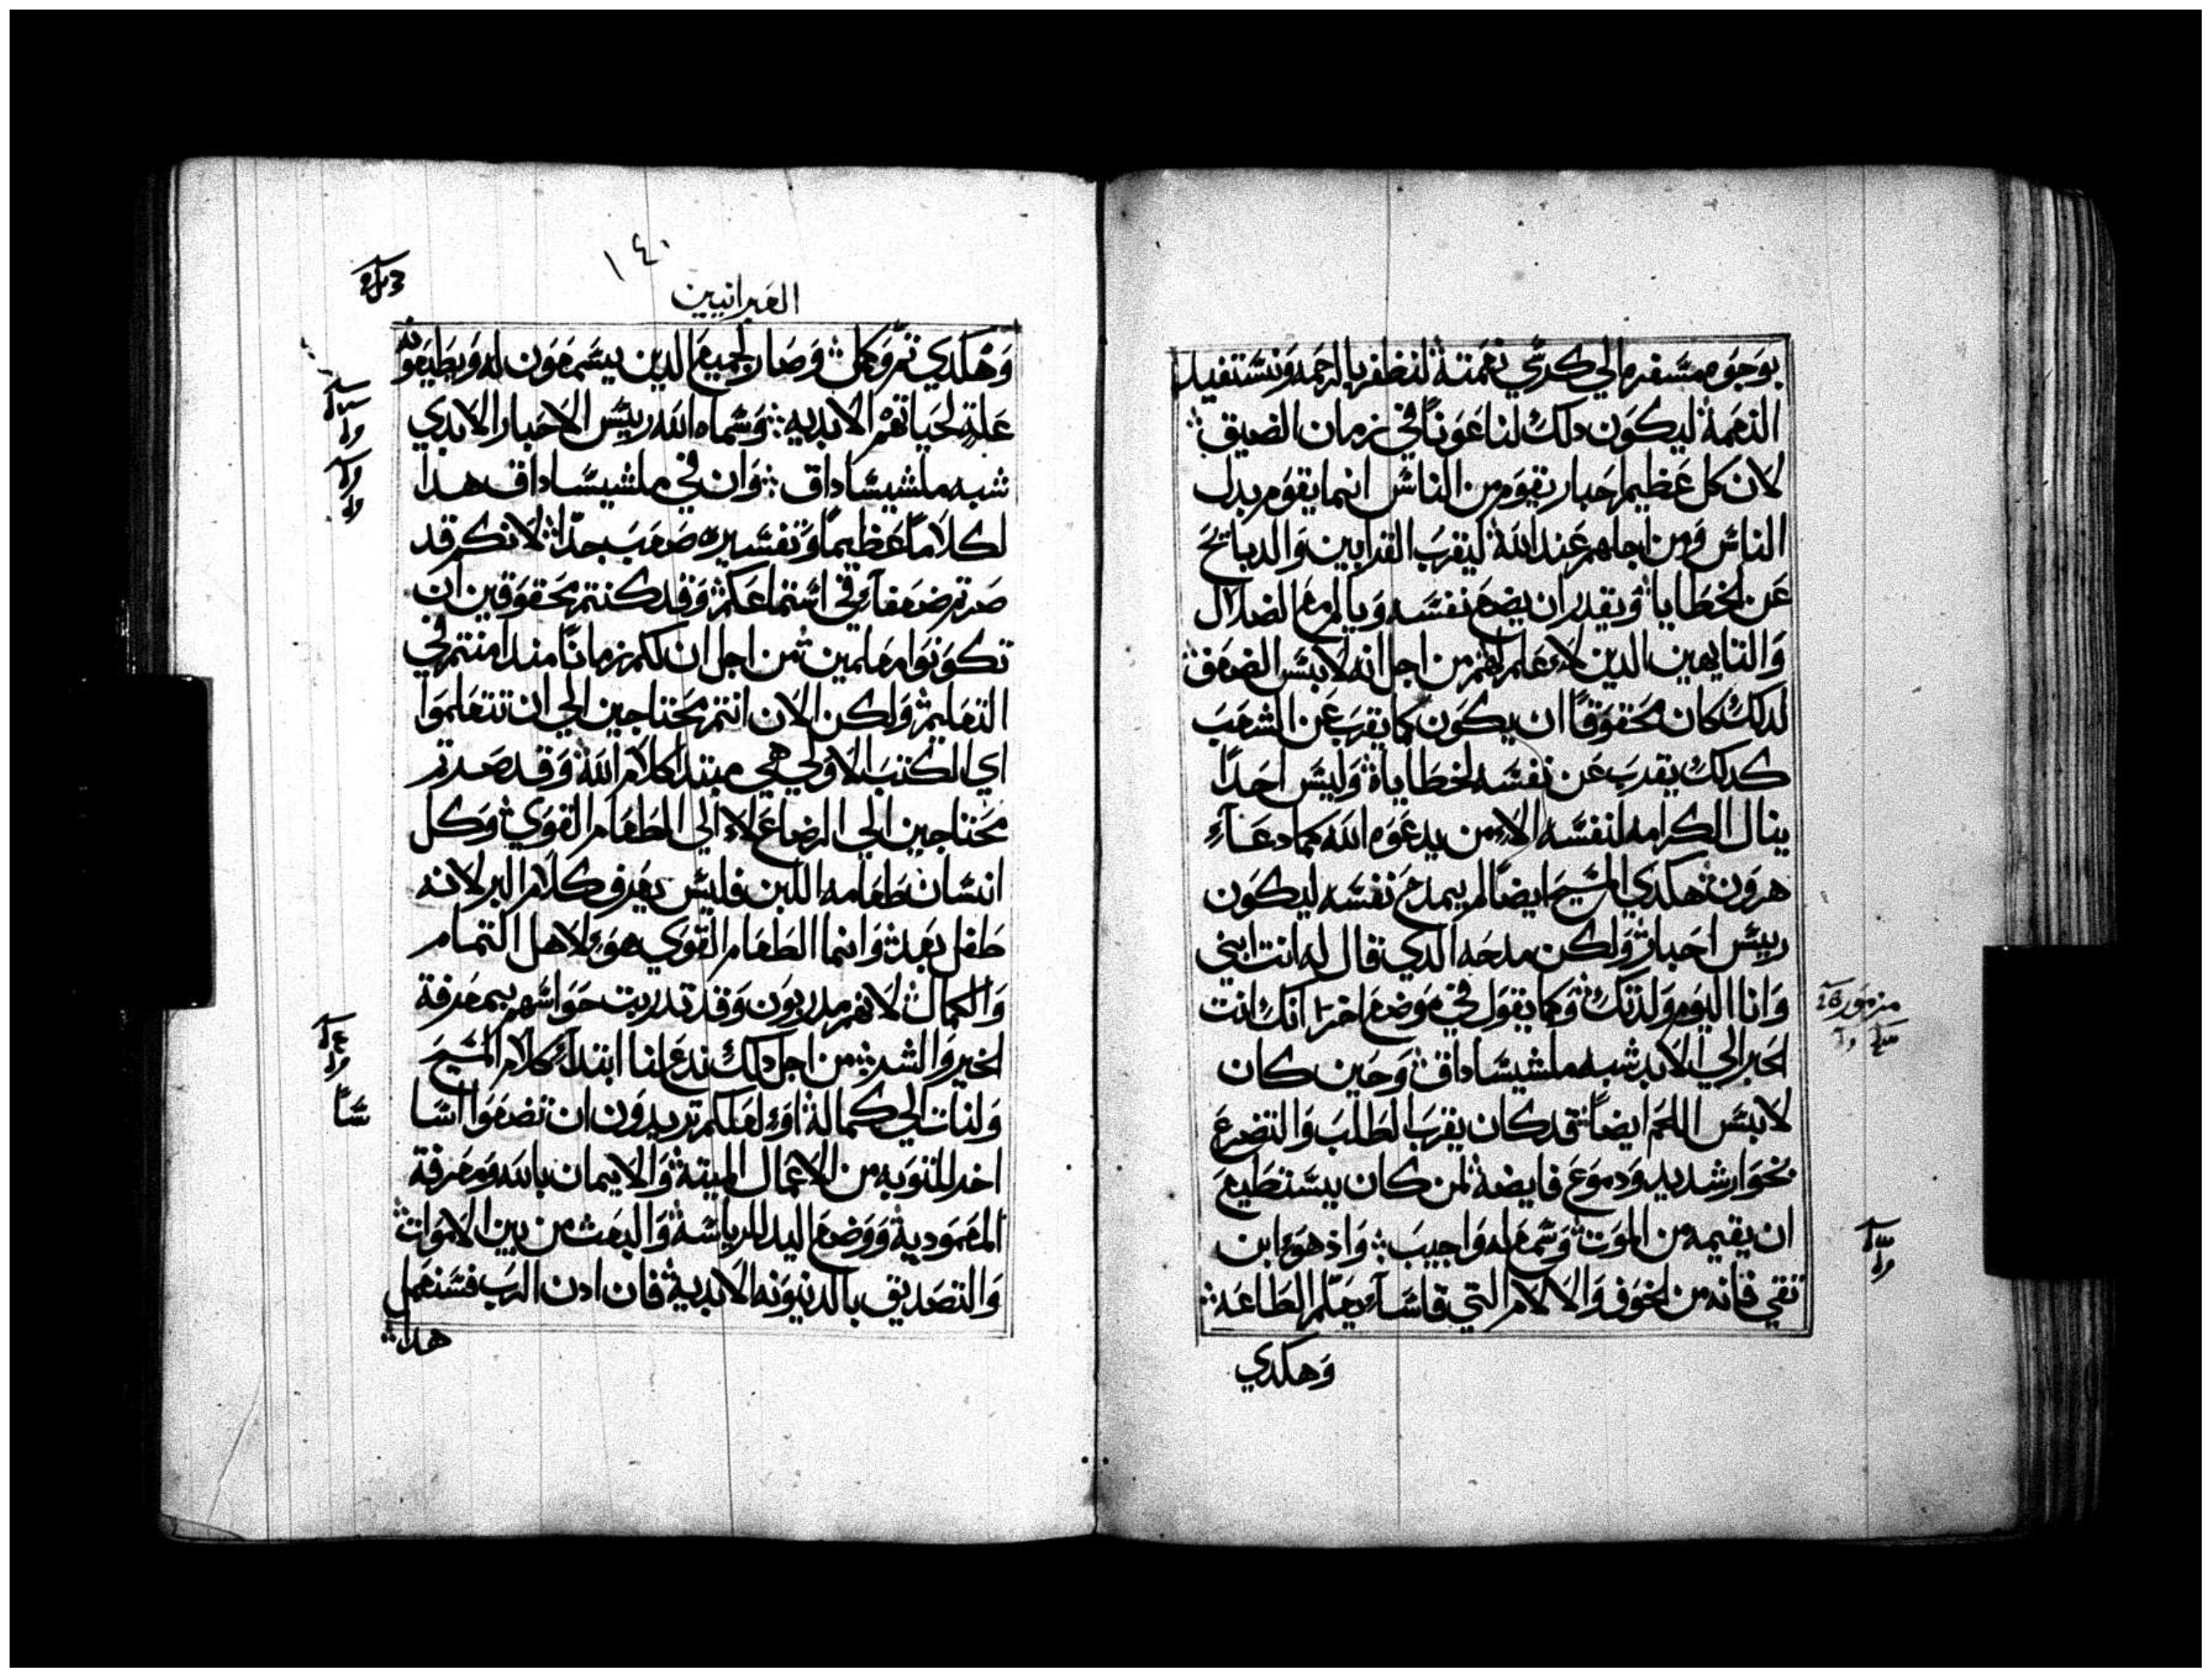 بوجوه مسفره الي كرسي نعمته لنظفر بالرحمه ونستفيد
النعمة ليكون دلك لنا عونا في زمان الضيق
لان كل عظيم احبار يقوم من الناس انما يقوم بدل
الناس ومن اجلهم عند الله ليقرب القرابين والدبايح
عن الخطايا ويقدر ان يضع نفسه ويالم مع الضلال
والتايهين الدين لا علم لهم من اجل انه لابس الضعف
لدلك كان محقوقا ان يكون كما يقرب عن الشعب
كدلك يقرب عن نفسه لخطاياه وليس احدا
ينال الكرامه لنفسه الا من يدعوه الله كما دعاء
هرون هكدي المسيح ايضا لم يمدح نفسه ليكون
رييس احبار ولكن مدحه الدي قال له انت ابني
وانا اليوم ولدتك وكما يقول في موضع اخر انك انت
الحبر الي الابد شبه ملشيساداق وحين كان
لابس اللحم ايضا قد كان يقرب الطلب والتضرع
بخوار شديد ودموع فايضة لمن كان يستطيع
ان يقيمه من الموت وسمع له واجيب واذ هو ابن
نقي فانه من الخوف والالام التي قاساء يعلم الطاعه
وهكدي
مزمور
١٤٠
العبرانيين
وهكدي تم وكمل وصار لجميع الدين يسمعون له ويطيعونه
علة لحياتهم الابديه وسماه الله رييس الاحبار الابدي
شبه ملشيساداق وان في ملشيساداق هدا
لكلاما عظيما وتفسيره صعب جدا لانكم قد
صرتم ضعفاء في استماعكم وقد كنتم محقوقين ان
تكونوا معلمين من اجل ان لكم زمانا مند امنتم في
التعليم ولكن الان انتم محتاجين الي ان تتعلموا
اي الكتب الاولي هي مبتدا كلام الله وقد صرتم
محتاجين الي الرضاع لا الي الطعام القوي وكل
انسان طعامه اللبن فليس يعرف كلام البر لانه
طفل بعد وانما الطعام القوي هو لاهل التمام
والكمال لانهم مدربون وقد تدربت حواسهم بمعرفة
الخير والشر من اجل دلك ندع لنا ابتداء كلام المسيح
ولنات الي كماله او لعلكم تريدون ان تضعوا اسا
اخر للتوبه من الاعمال الميتة والايمان بالله ومعرفة
المعمودية ووضع اليد للرياسة والبعث من بين الاموات
والتصديق بالدينونه الابدية فان ادن الرب فسنعمل
هدا
سا